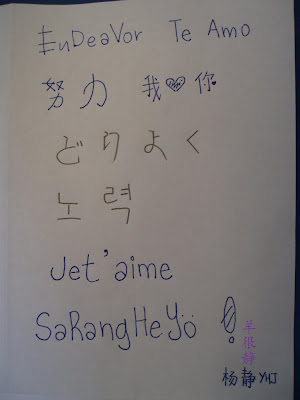 EuDeaVor Te Amo
努力 我♡你
どりよく
노력
Jet'aime
SaRangHeYo!
羊很静
杨静 YHJ